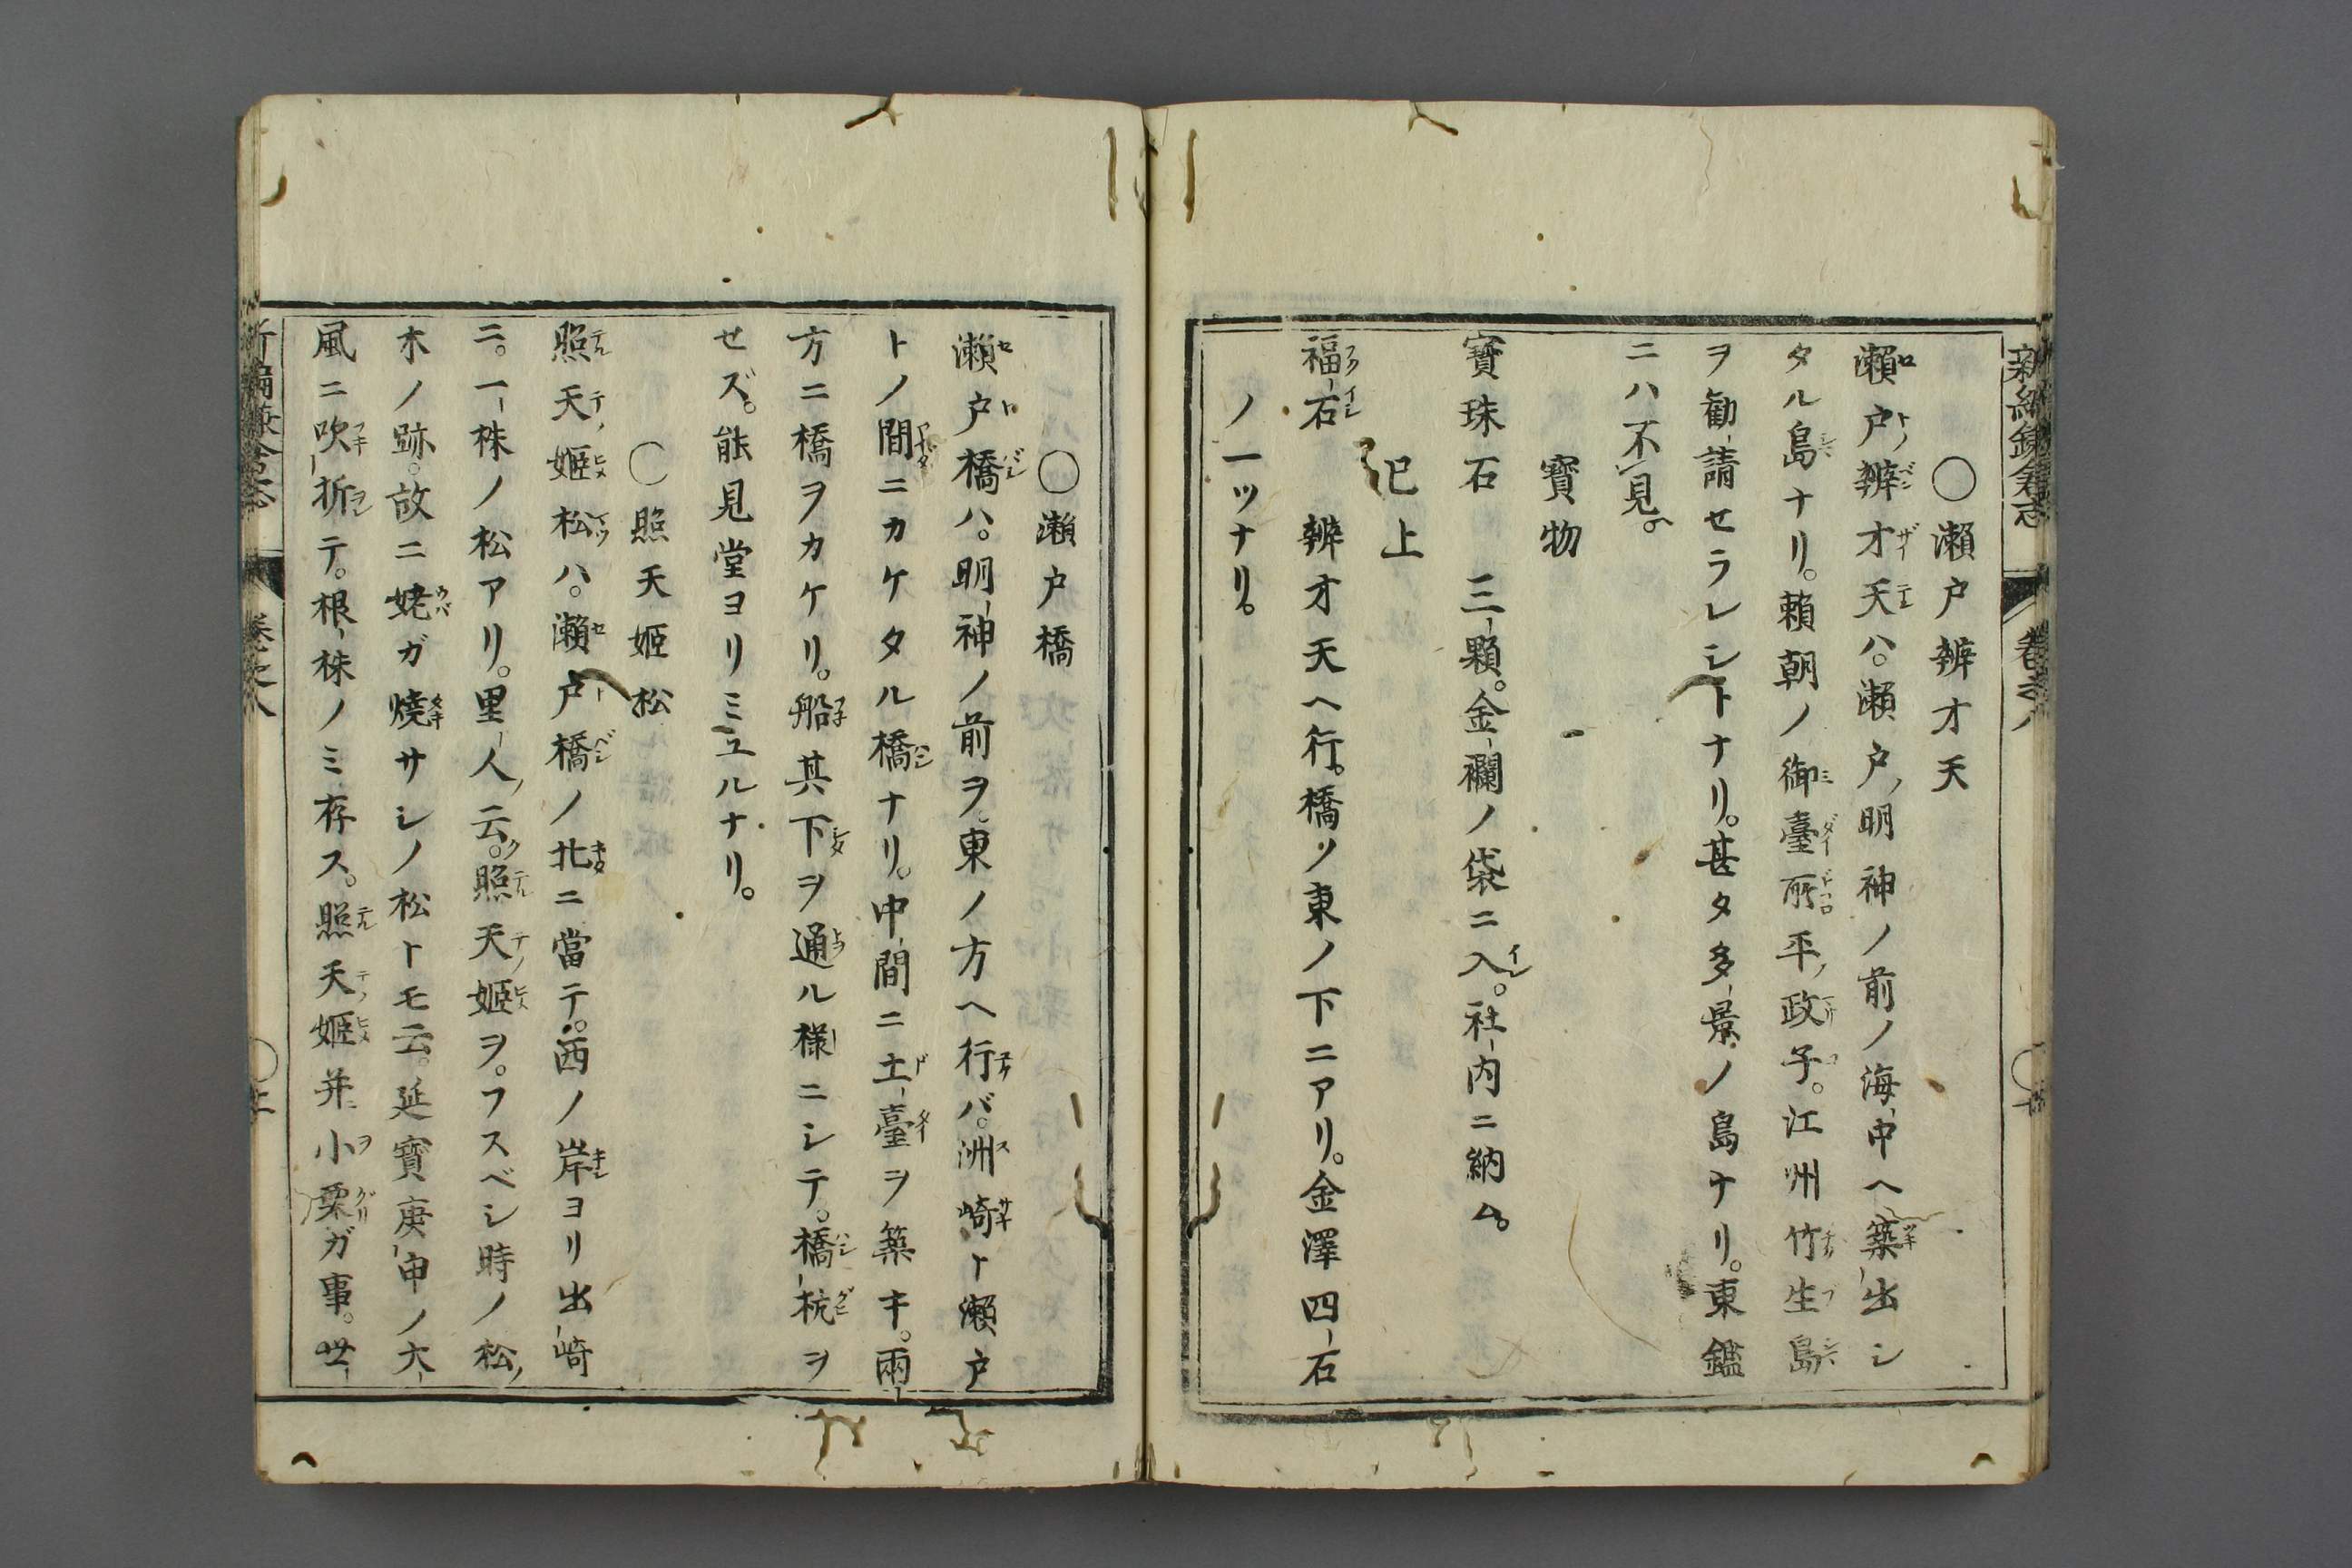 新編鎌倉志
卷之八
○瀬戸辨才天
瀬戸辨才天ハ。瀬戸明神ノ前ノ海中ヘ築出シ
タル島ナリ。賴朝ノ御臺所平政子。江州竹生島
ヲ勸請セラレシトナリ。甚タ多景ノ島ナリ。東鑑
ニハ不見。
寶物
寶珠石 三顆。金襴ノ袋ニ入。社内ニ納ム。
已上
福石 辨才天ヘ行。橋ノ東ノ下ニアリ。金澤四石
ノ一ツナリ。
○瀬戸橋
瀬戸橋ハ。明神ノ前ヲ。東ノ方ヘ行バ。洲崎ト瀬戸
トノ間ニカケタル橋ナリ。中間ニ土臺ヲ築キ。兩
方ニ橋ヲカケリ。船其下ヲ通ル樣ニシテ。橋杭ヲ
セズ。能見堂ヨリミユルナリ。
○照天姫松
照天姫松ハ。瀬戸橋ノ北ニ當テ。西ノ岸ヨリ出崎
ニ。一株ノ松アリ。里人云。照天姫ヲ。フスベシ時ノ松
木ノ跡。故ニ姥ガ燒サシノ松トモ云。延寶庚申ノ大
風ニ吹折テ。根株ノミ存ス。照天姫并小栗ガ事。世
新編鎌倉志
卷之八